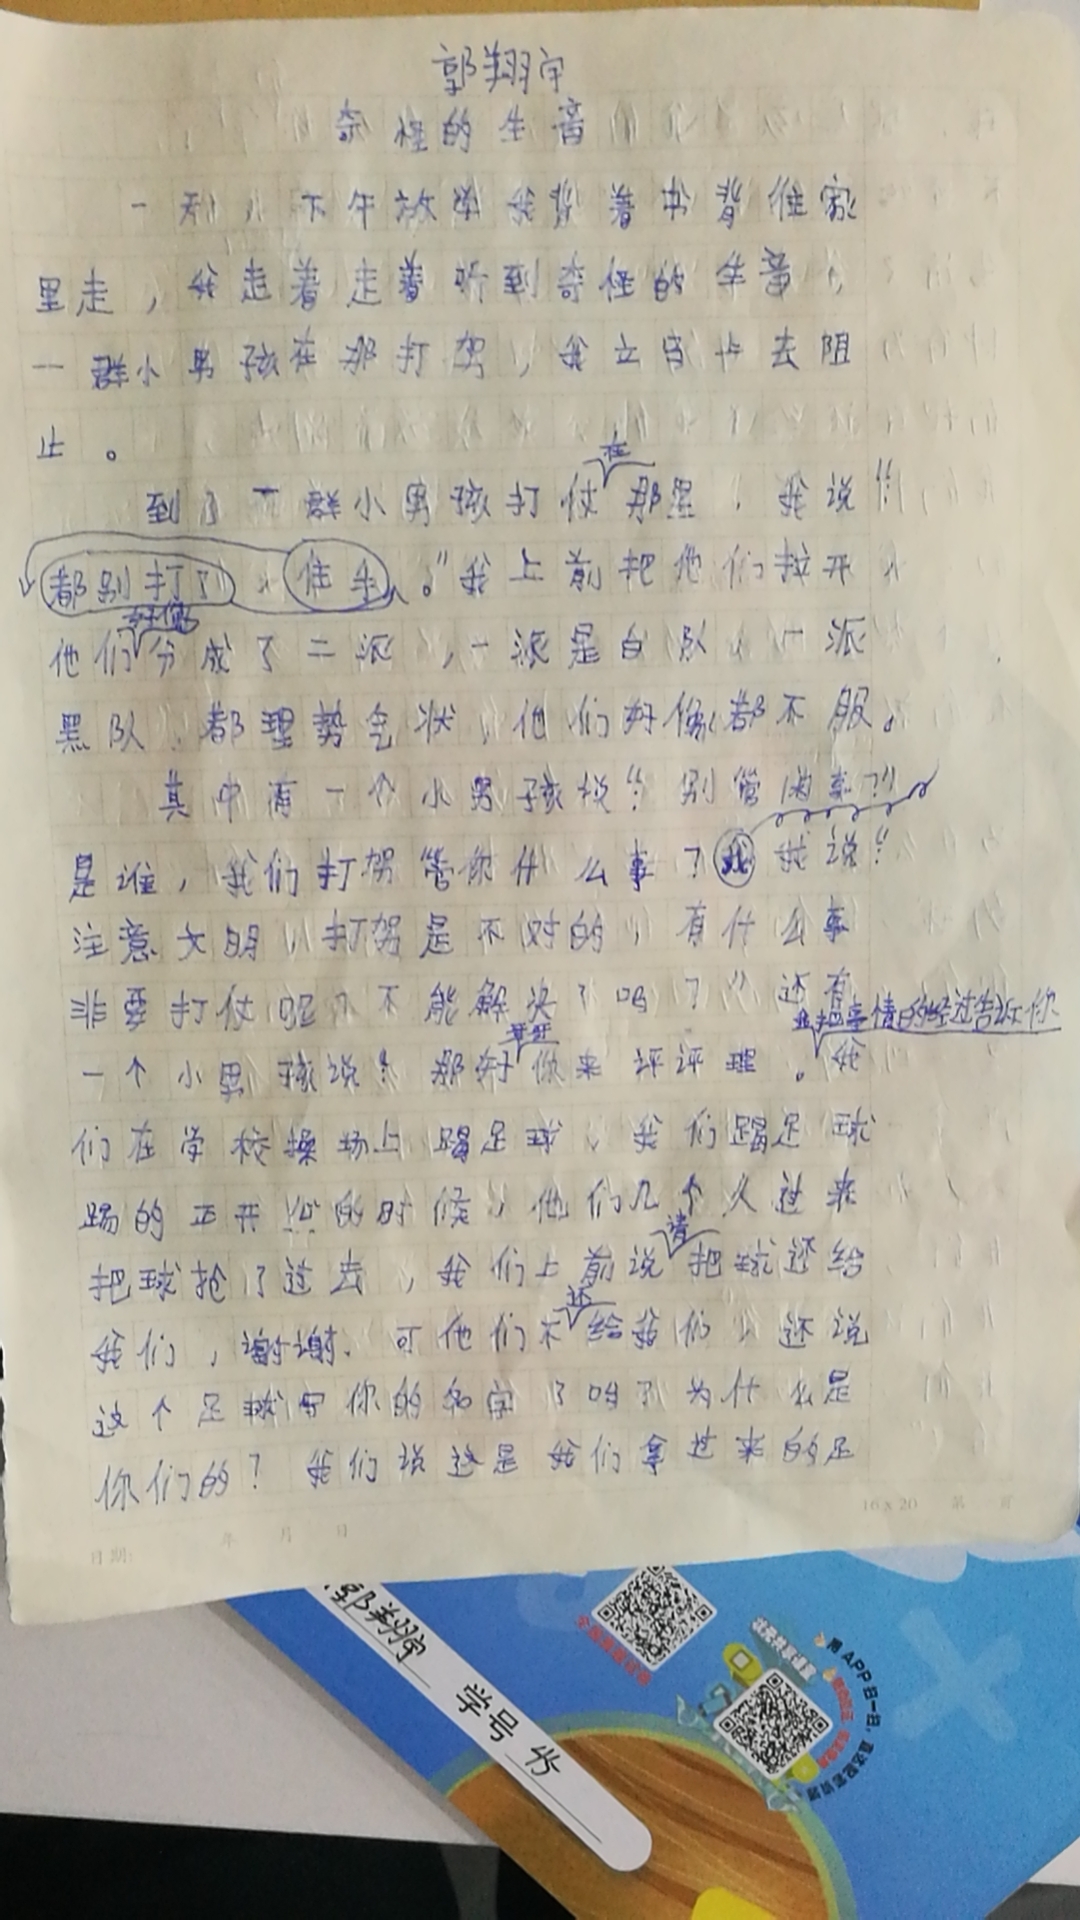 郭翔宇
奇怪的生音
一到了下午放学我背着书背往家
里走，我走着走着听到奇怪的生音，
一群小男孩在那打驾，我立马上去阻
止。
到了一群小男孩打仗在那里，我说“
都别打了，住手。”我上前把他们拉开
他们好像分成了二派，一派是白队，一派
黑队，都理势气状，他们好像都不服。
其中有一个小男孩说“别管闲事？”
是谁，我们打驾管你什么事？我 我说“
注意文明，打驾是不对的，有什么事
非要打仗呢？不能解决了吗？”还有
一个小男孩说“那好你来评评理。我把事情的经过告诉你 我
们在学校操场上踢足球，我们踢足球
踢的正开心的时候，他们几个人过来
把球抢了过去，我们上前说请把球还给
我们，谢谢。可他们不还给我们，还说
这个足球写你的名字了吗？为什么是
你们的？我们说这是我们拿过来的足
16x20 第 页
日期: 年 月 日
郭翔宇 学号 45
用APP扫一扫，